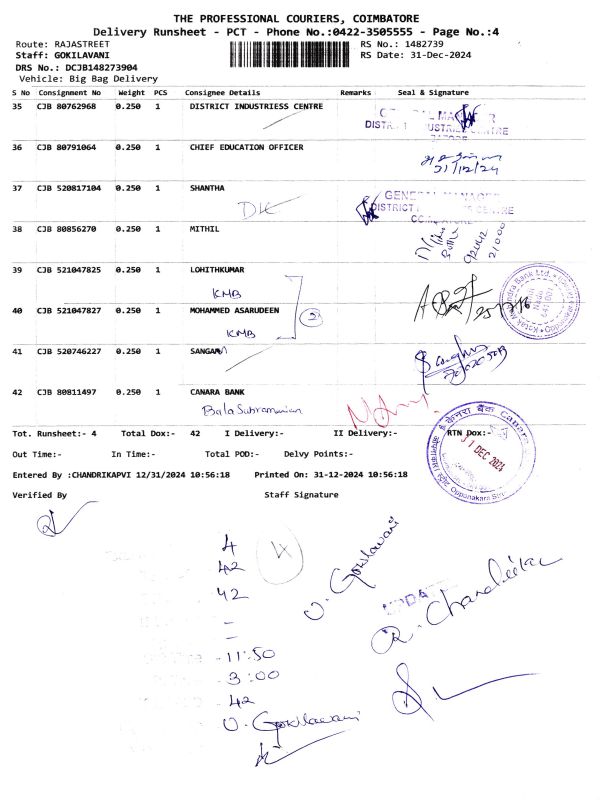 THE PROFESSIONAL COURIERS, COIMBATORE
Delivery Runsheet - PCT - Phone No.:0422-3505555 - Page No.:4
Route: RAJASTREET RS No.: 1482739
Staff: GOKILAVANI RS Date: 31-Dec-2024
DRS No.: DCJB148273904
Vehicle: Big Bag Delivery
S No Consignment No Weight PCS Consignee Details Remarks Seal & Signature
35 CJB 80762968 0.250 1 DISTRICT INDUSTRIESS CENTRE
36 CJB 80791064 0.250 1 CHIEF EDUCATION OFFICER
31/12/24
37 CJB 520817104 0.250 1 SHANTHA
GENERAL MANAGER
DISTRICT CENTRE
38 CJB 80856270 0.250 1 MITHIL
39 CJB 521047825 0.250 1 LOHITHKUMAR
KMB
2
40 CJB 521047827 0.250 1 MOHAMMED ASARUDEEN
KMB
41 CJB 520746227 0.250 1 SANGAVI
42 CJB 80811497 0.250 1 CANARA BANK
Bala Subramanian
Tot. Runsheet:- 4 Total Dox:- 42 I Delivery:- II Delivery:- RTN Dox:-
31 DEC 2024
Out Time:- In Time:- Total POD:- Delvy Points:-
Entered By :CHANDRIKAPVI 12/31/2024 10:56:18 Printed On: 31-12-2024 10:56:18
Verified By Staff Signature
4
42
42
-
-
- 11:50
- 3:00
- 42
V. Gokilavani
V. Gokilavani
R. Chandrika